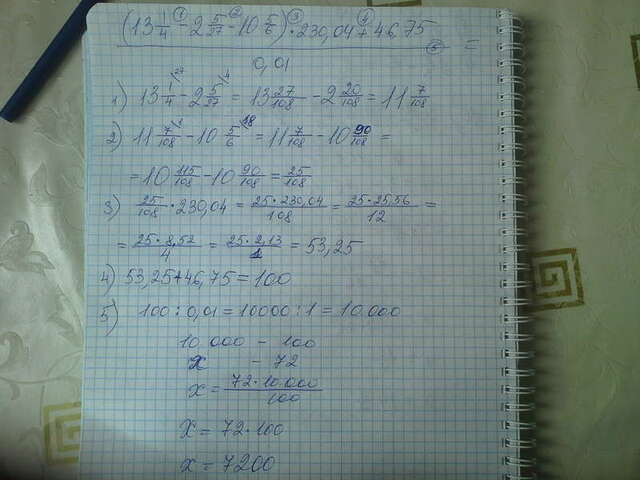 ① ② ③ ④
(13 1/4 - 2 5/27 - 10 5/6) · 230,04 + 46,75 ⑤ =
0,01
1) 13 1/4 \27 - 2 5/27 \4 = 13 27/108 - 2 20/108 = 11 7/108
2) 11 7/108 \1 - 10 5/6 \18 = 11 7/108 - 10 90/108 =
= 10 115/108 - 10 90/108 = 25/108
3) 25/108 · 230,04 = 25·230,04/108 = 25·25,56/12 =
= 25·8,52/4 = 25·2,13/1 = 53,25
4) 53,25+46,75 = 100
5) 100 : 0,01 = 10000 : 1 = 10.000
10 000 - 100
x - 72
x = 72·10.000/100
x = 72·100
x = 7200